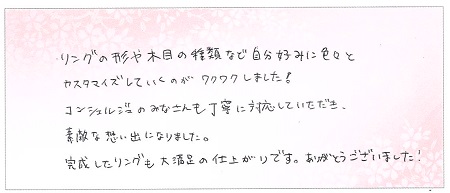 リングの形や木目の種類など自分好みに色々と
カスタマイズしていくのがワクワクしました!
コンシェルジュのみなさんも丁寧に対応していただき、
素敵な思い出になりました。
完成したリングも大満足の仕上がりです。ありがとうございました!